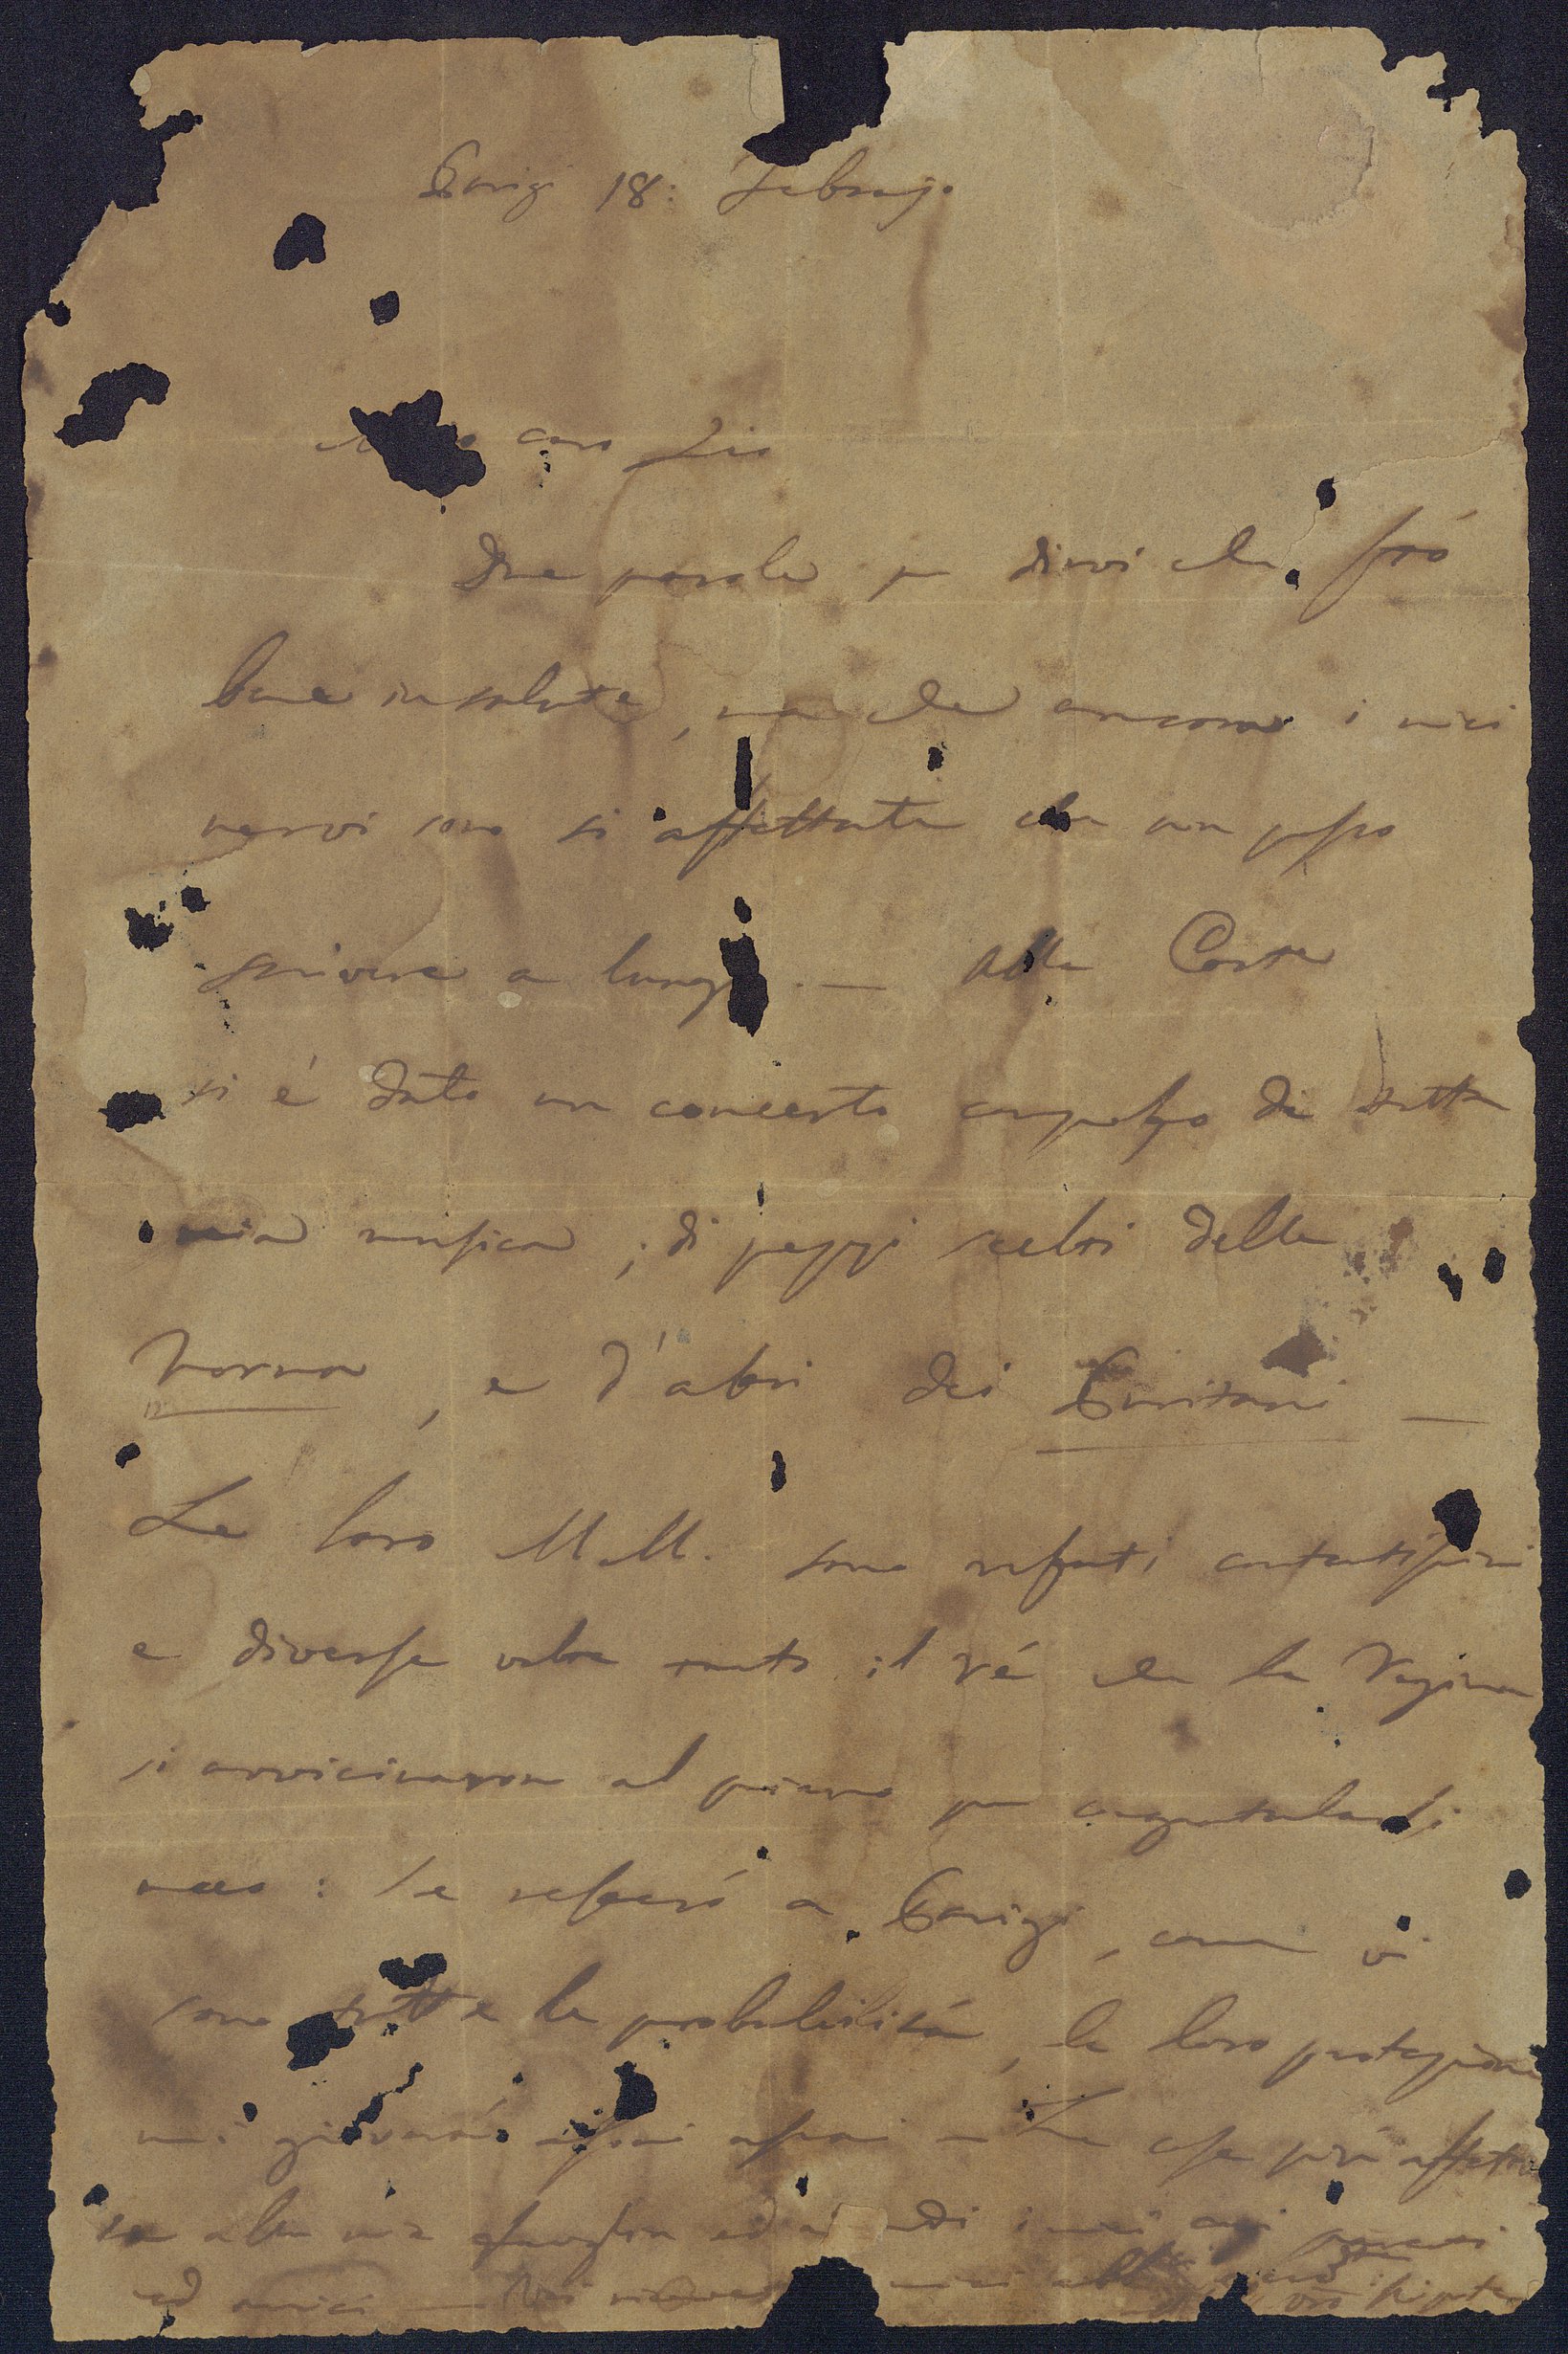 Parigi 18: Febrajo
caro Zio
Due parole per dirvi che stò
bene in salute, ma che ancora i miei
nervi sono si affettati che non posso
scrivere a lungo. — Alla Corte
si é dato un concerto composto di tutta
mia musica; di pezzi scelti della
Norma, e d'altri dei Puritani —
Le loro M.M. sono restati contentissimi
e diverse volte tanto il Ré che la Regina
si avvicinarono al piano per congratularsi
meco: Se resterò a Parigi, come vi
sono tutte le probabilità, le loro protezione
mi gioverà assai assai — Le cose più affettuo
se alla mia famiglia ed a tutti i miei cari parenti
ed amici —